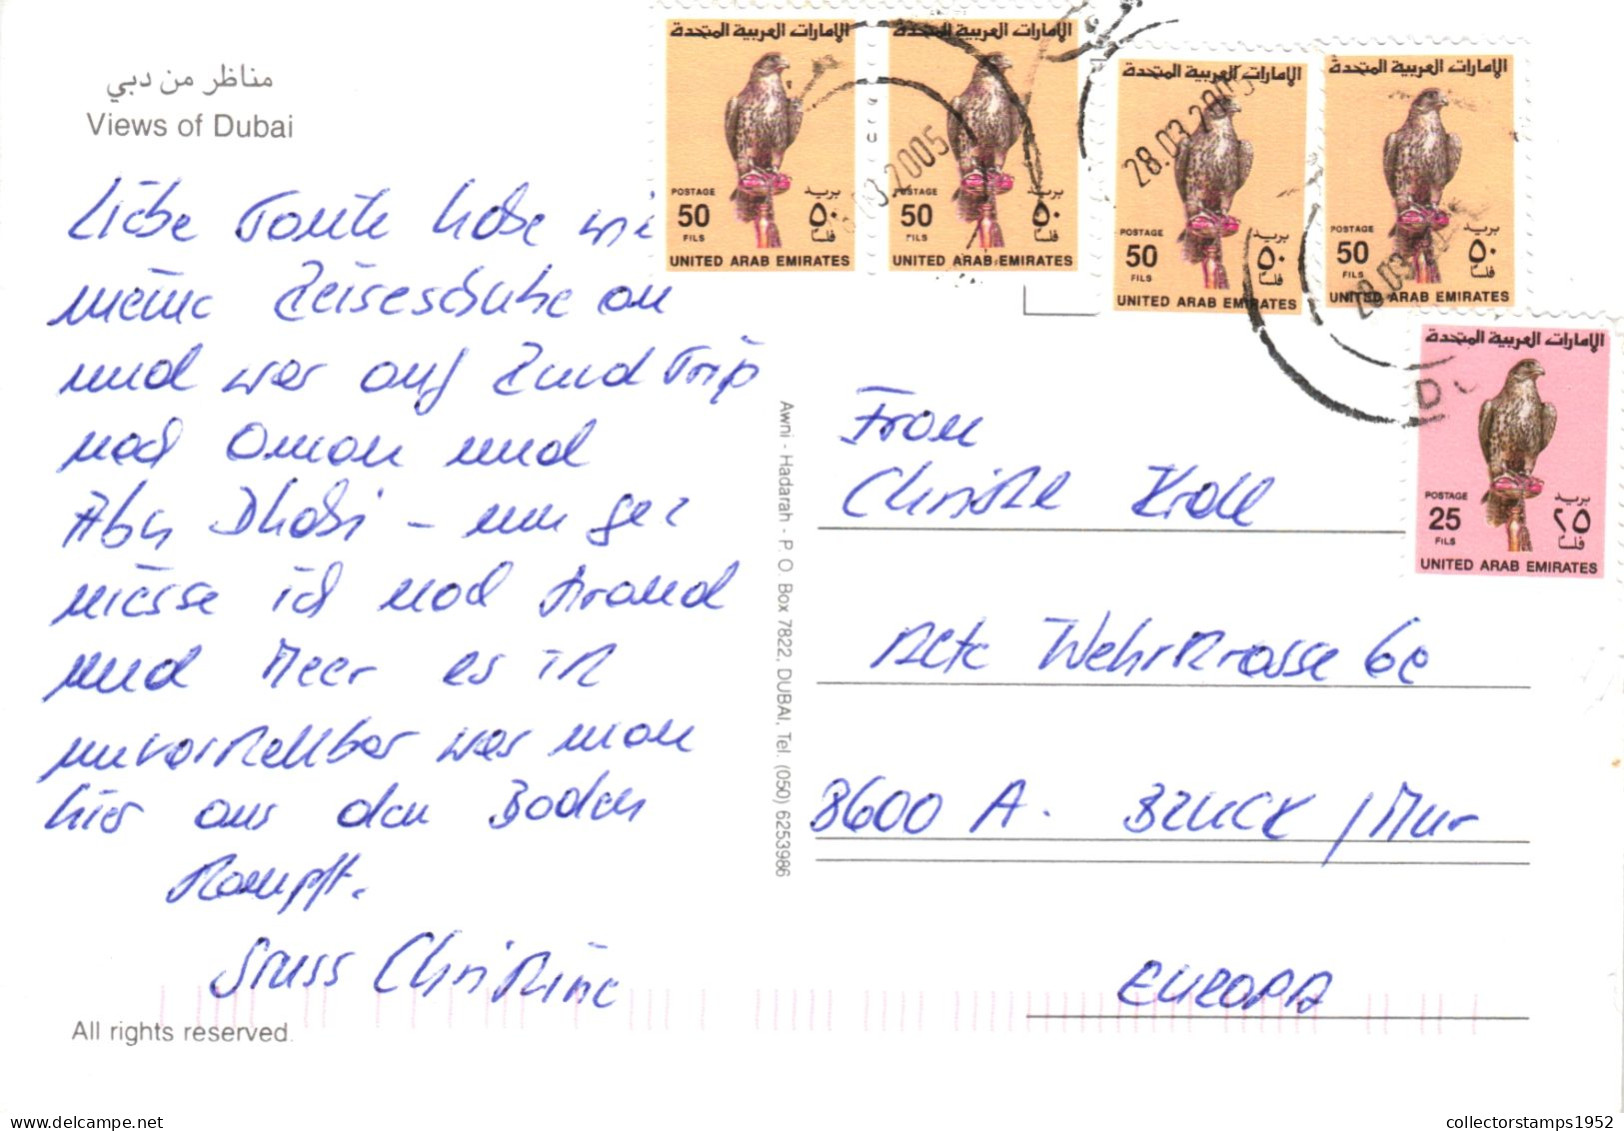 مناظر من دبي
Views of Dubai
Liebe Tante habe wi
meine Reiseschuhe an
und war auf Rund Trip
nach Oman und
Abu Dhabi – nun ge-
niesse ich noch Strand
und Meer es ist
unvorstellbar was man
hier aus den Boden
stampft.
Gruss Christine
All rights reserved.
Awni - Hadarah - P. O. Box 7822, DUBAI, Tel. (050) 6253986
الإمارات العربية المتحدة
POSTAGE بريد
50 ٥٠
FILS فلسا
UNITED ARAB EMIRATES
الإمارات العربية المتحدة
POSTAGE بريد
50 ٥٠
FILS فلسا
UNITED ARAB EMIRATES
03.2005
الإمارات العربية المتحدة
POSTAGE بريد
50 ٥٠
FILS فلسا
UNITED ARAB EMIRATES
28.03.2005
الإمارات العربية المتحدة
POSTAGE بريد
50 ٥٠
FILS فلسا
UNITED ARAB EMIRATES
28.03
الإمارات العربية المتحدة
POSTAGE بريد
25 ٢٥
FILS فلسا
UNITED ARAB EMIRATES
Frau
Christl Kroll
Alte Wehrstrasse 6e
8600 A. BRUCK / Mur
EUROPA
collectorstamps1952